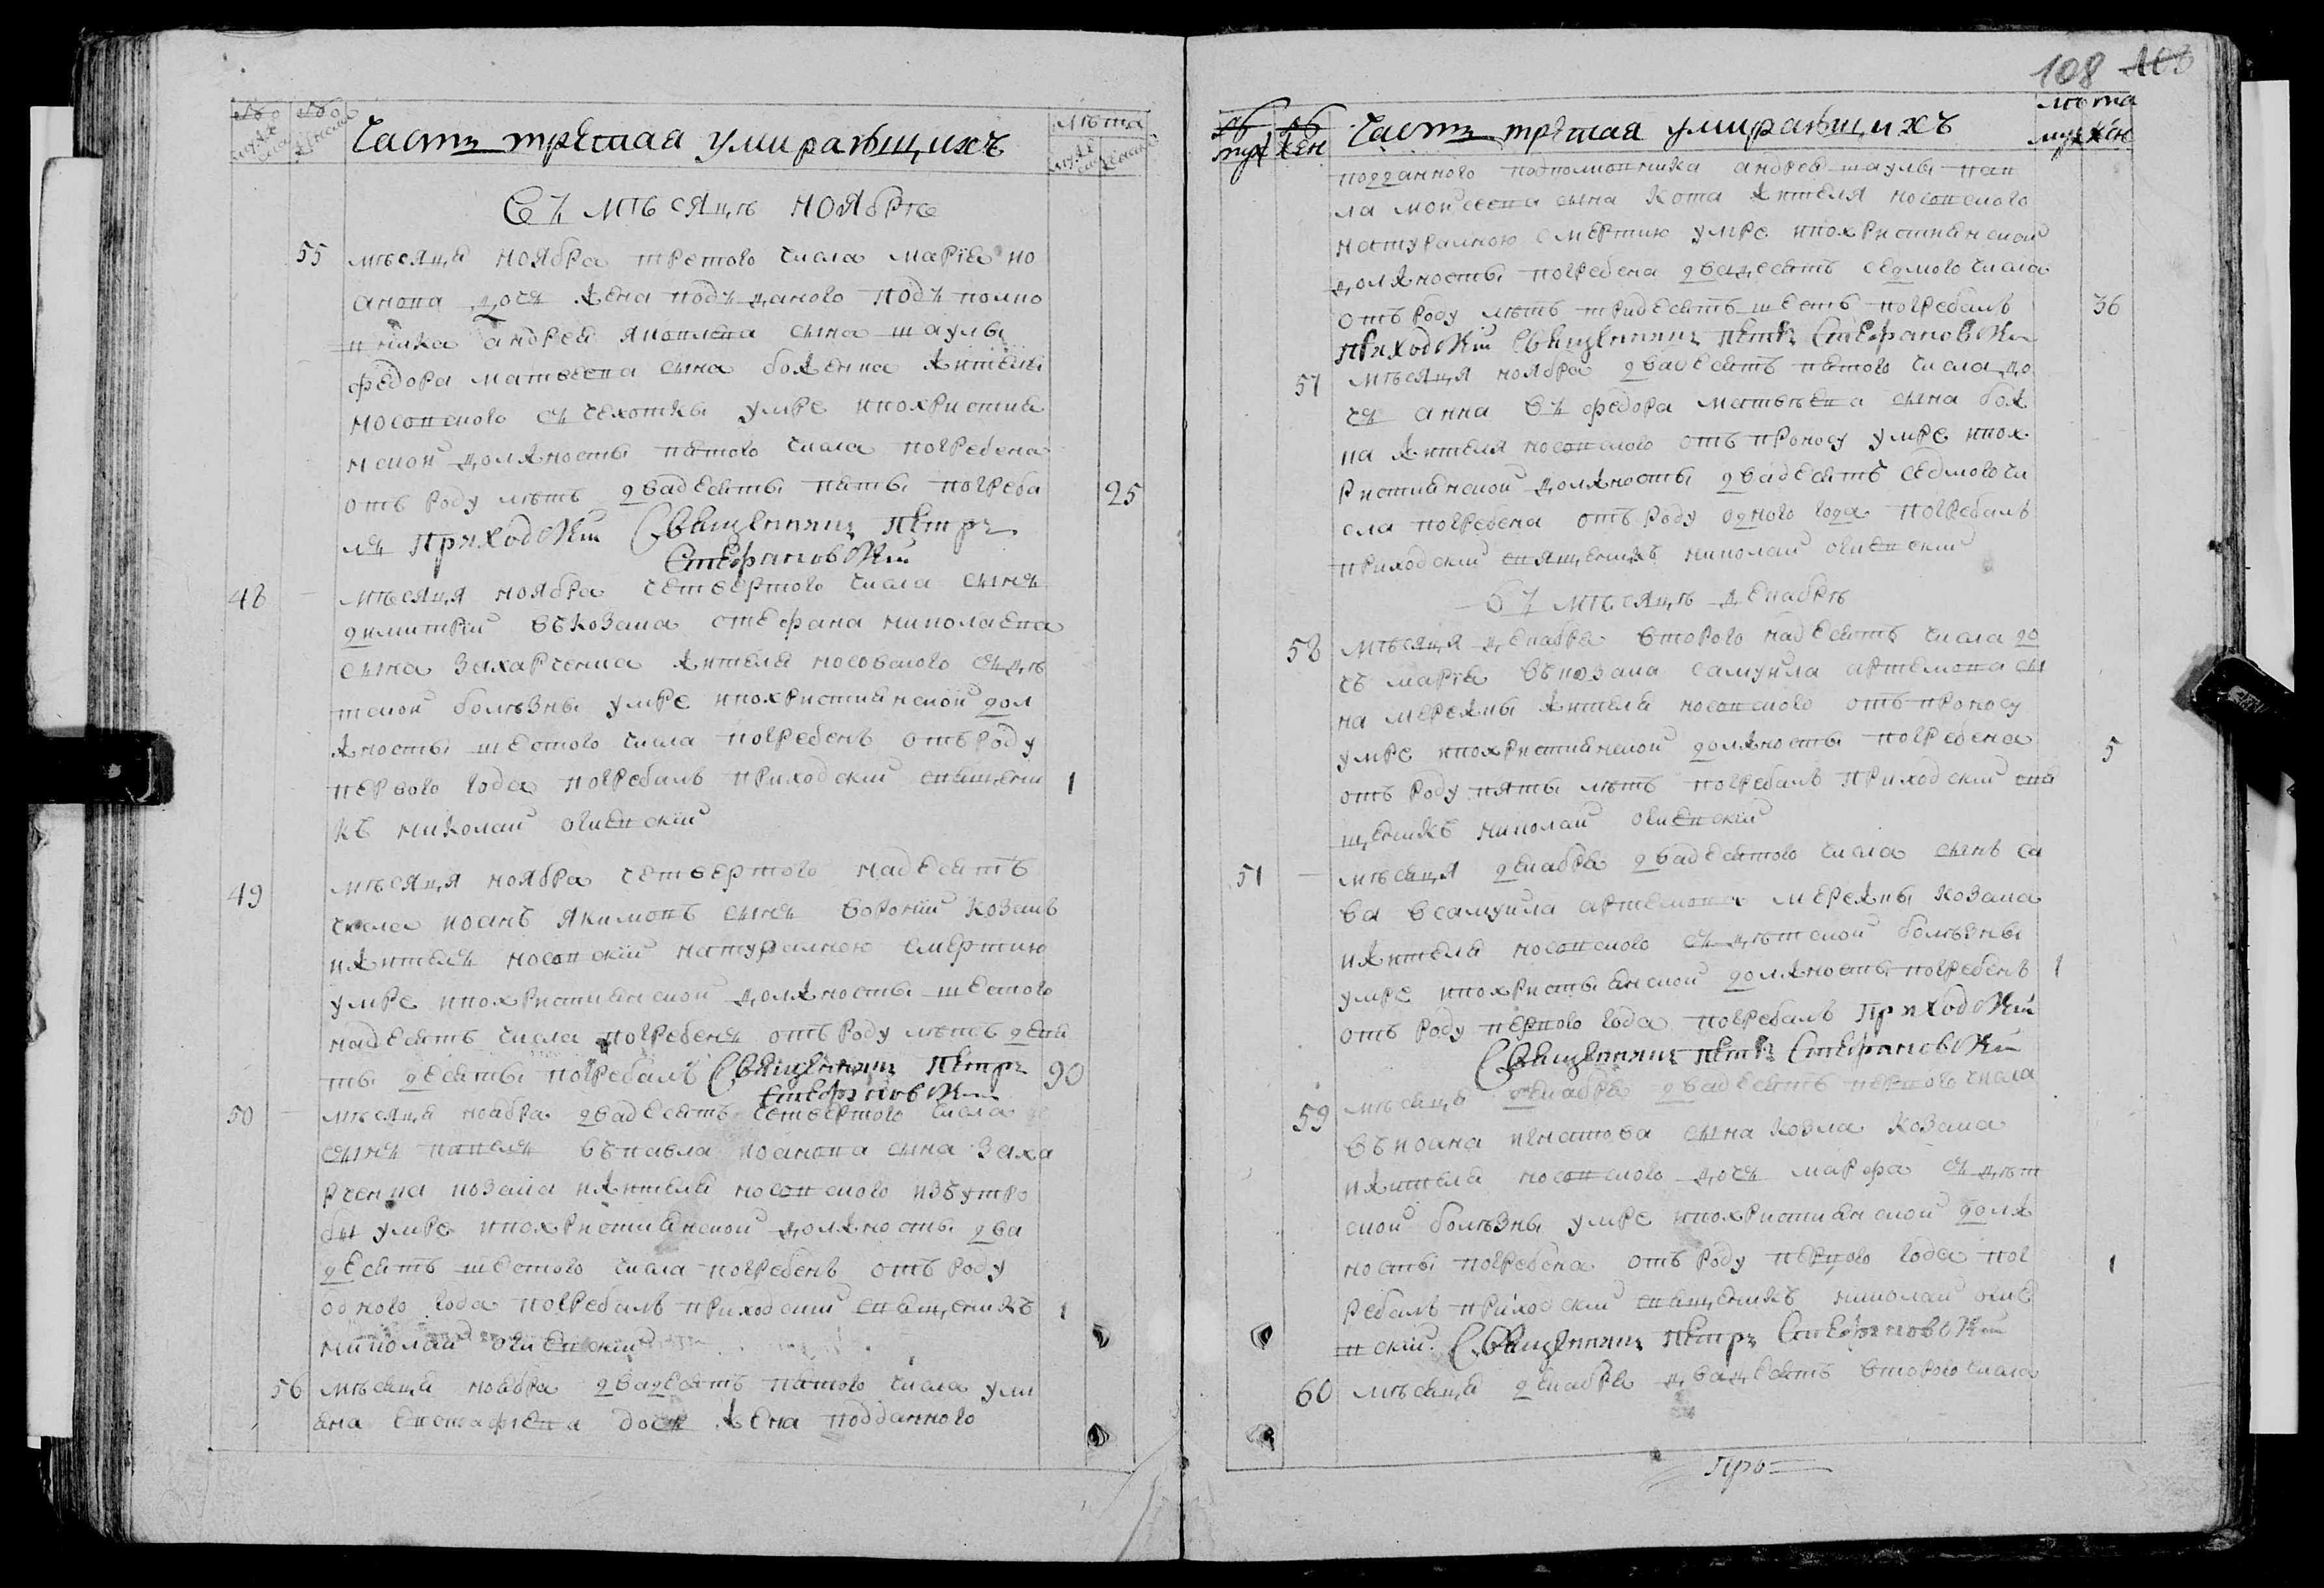 Часть третая умираѣщихъ
лѣта
въ мѣсяцѣ ноябрѣ
55 мѣсяца ноября третого числа марїя ио
анова дочь жена подъданого подъполко
вника андрея яковлева сына шаулы
федора матвеева сына боженка жителкі
носовского съ чехотки умре ипохристия
нской должности пятого числа погребена
отъ роду лѣтъ двадесяты пяты погреба 25
лъ приходскїй Священникъ Петръ
Стефановскїй
48 мѣсяця ноября четвертого числа сынъ
димитрїй въ козака стефана николаева
сына захарченка жителя носовского съ дѣ
тской болѣзны умре ипохристиянской дол
жносты шестого числа погребенъ отъ роду
первого года погребалъ приходскїй священи 1
къ николай огиевскїй
49 мѣсяця ноября четвертого надесять
числа иоанъ якимовъ сынъ воронїй козакъ
ижитель носовскїй натуралною смертию
умре ипохристиянской должносты шестого
надесять числа погребенъ отъ роду лѣтъ девя
ты десяты погребалъ Священникъ Петръ 90
Стефановскїй
50 мѣсяця ноября двадесять четвертого числа
сынъ павелъ въ павла иоанова сына заха
рченка козака ижителя носовского изъ утро
бы умре ипохристиянской должносты два
десять шестого числа погребенъ отъ роду
одного года погребалъ приходскїй священикъ 1
николай огиевскїй
56 мѣсяця ноября двадесять пятого числа ули
яна евстафиева дочь жена подданного
108
лѣта
муж жен Часть третая умираѣщихъ муж жен
подданного подполковника андрея шаулы пав
ла моисеева сына кота жителя носовского
натуралною смертию умре ипохристиянской
должносты погребена двадесять седмого числа
отъ роду лѣтъ тридесять шесть погребалъ 36
приходскїй Священникъ Петръ Стефановскїй
57 мѣсяця ноября двадесять пятого числа до
чъ анна въ федора матвѣева сына бож
ка жителя носовского отъ проносу умре ипох
ристиянской должносты двадесять седмого чи
сла погребена отъ роду одного года погребалъ
приходский священикъ николай огиевский
въ мѣсяцѣ декабрѣ
58 мѣсяця декабря второго надесять числа до
чъ марїя въ козака самуила артемова сы
на мережкы жителя носовского отъ проносу
умре ипохристиянской должносты погребена 5
отъ роду пяты лѣтъ погребалъ приходский свя
щеникъ николай огиевскїй
51 мѣсяця декабря двадесятого числа сынъ са
ва в самуила артемова мережкы козака
ижителя носовского съ дѣтской болѣзны
умре ипохристыянской должносты погребенъ 1
отъ роду первого года погребалъ приходскїй
Священникъ Петръ Стефановскїй
59 мѣсяця декабря двадесять первого числа
въ иоана игнатова сына козла козака
ижителя носовского дочъ марфа съ дѣт
ской болѣзны умре ипохристиянской долж
носты погребена отъ роду первого года пог 1
ребалъ приходский священикъ николай огие
вскїй. Священникъ Петръ Стефановскїй
60 мѣсяця декабря двадесять второго числа
про